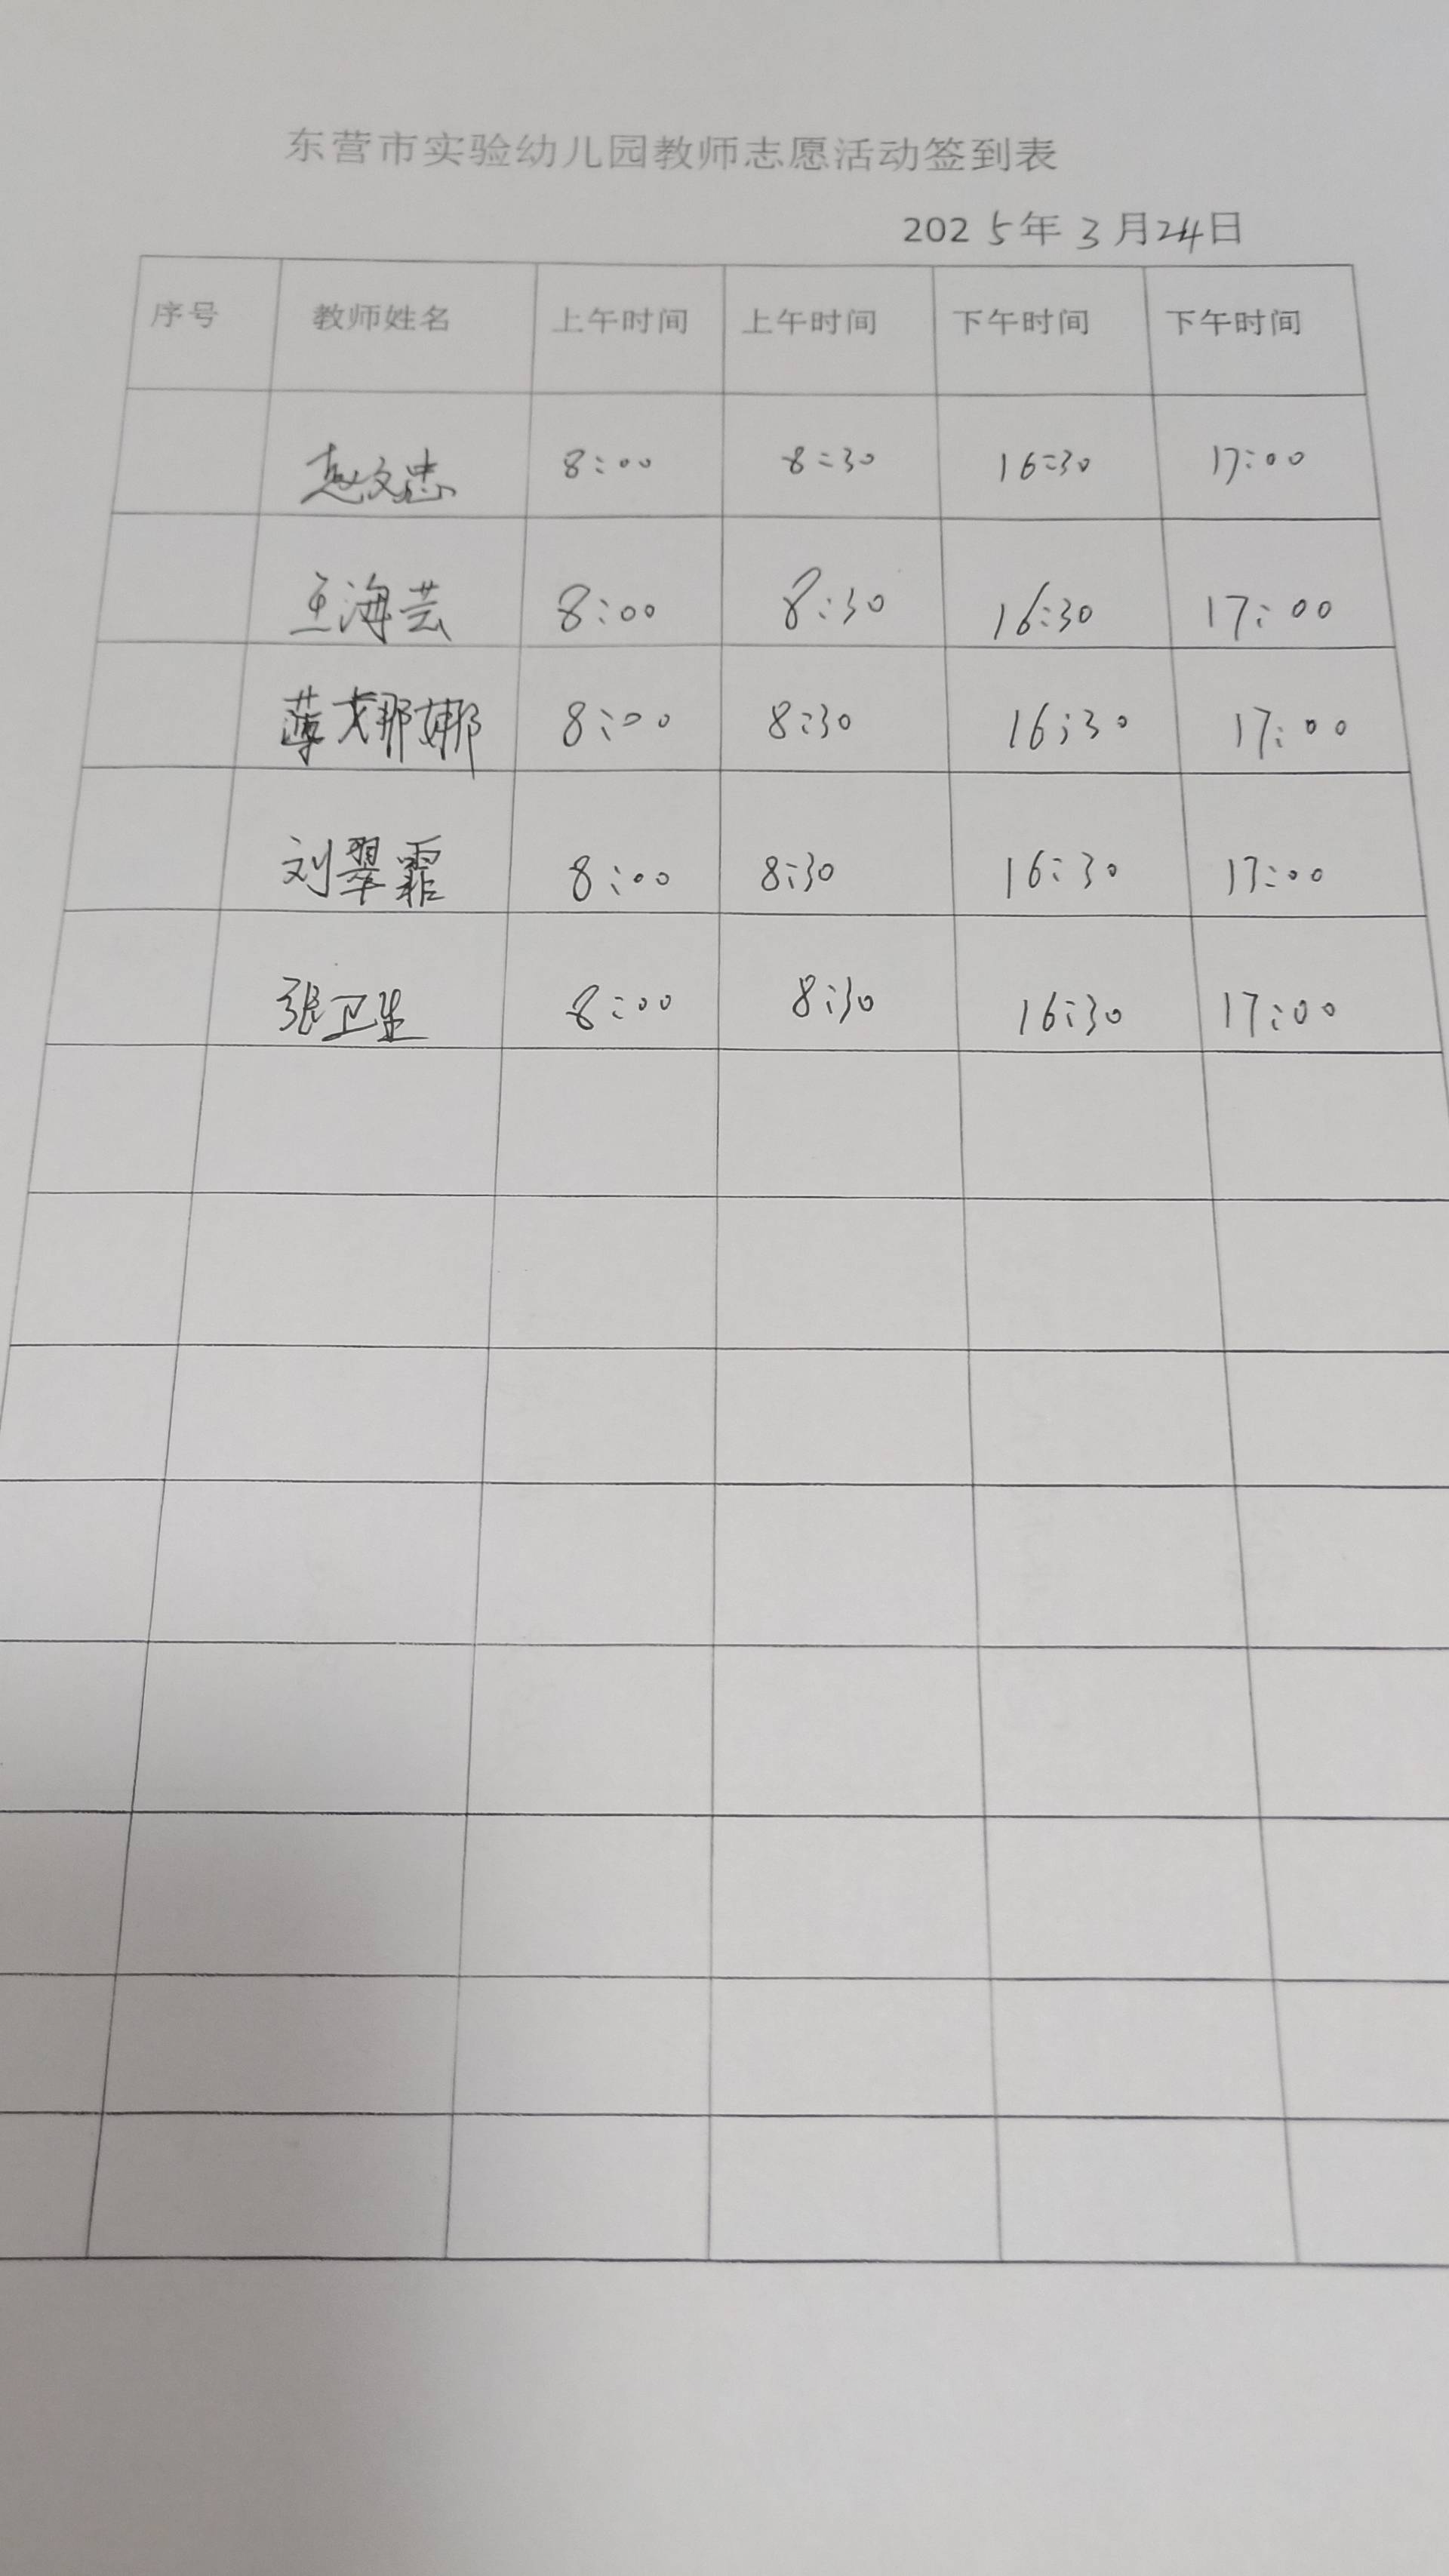 东营市实验幼儿园教师志愿活动签到表
2025年3月24日
序号 教师姓名 上午时间 上午时间 下午时间 下午时间
赵文忠 8:00 8:30 16:30 17:00
王海芸 8:00 8:30 16:30 17:00
薄娜娜 8:00 8:30 16:30 17:00
刘翠霏 8:00 8:30 16:30 17:00
张卫生 8:00 8:30 16:30 17:00